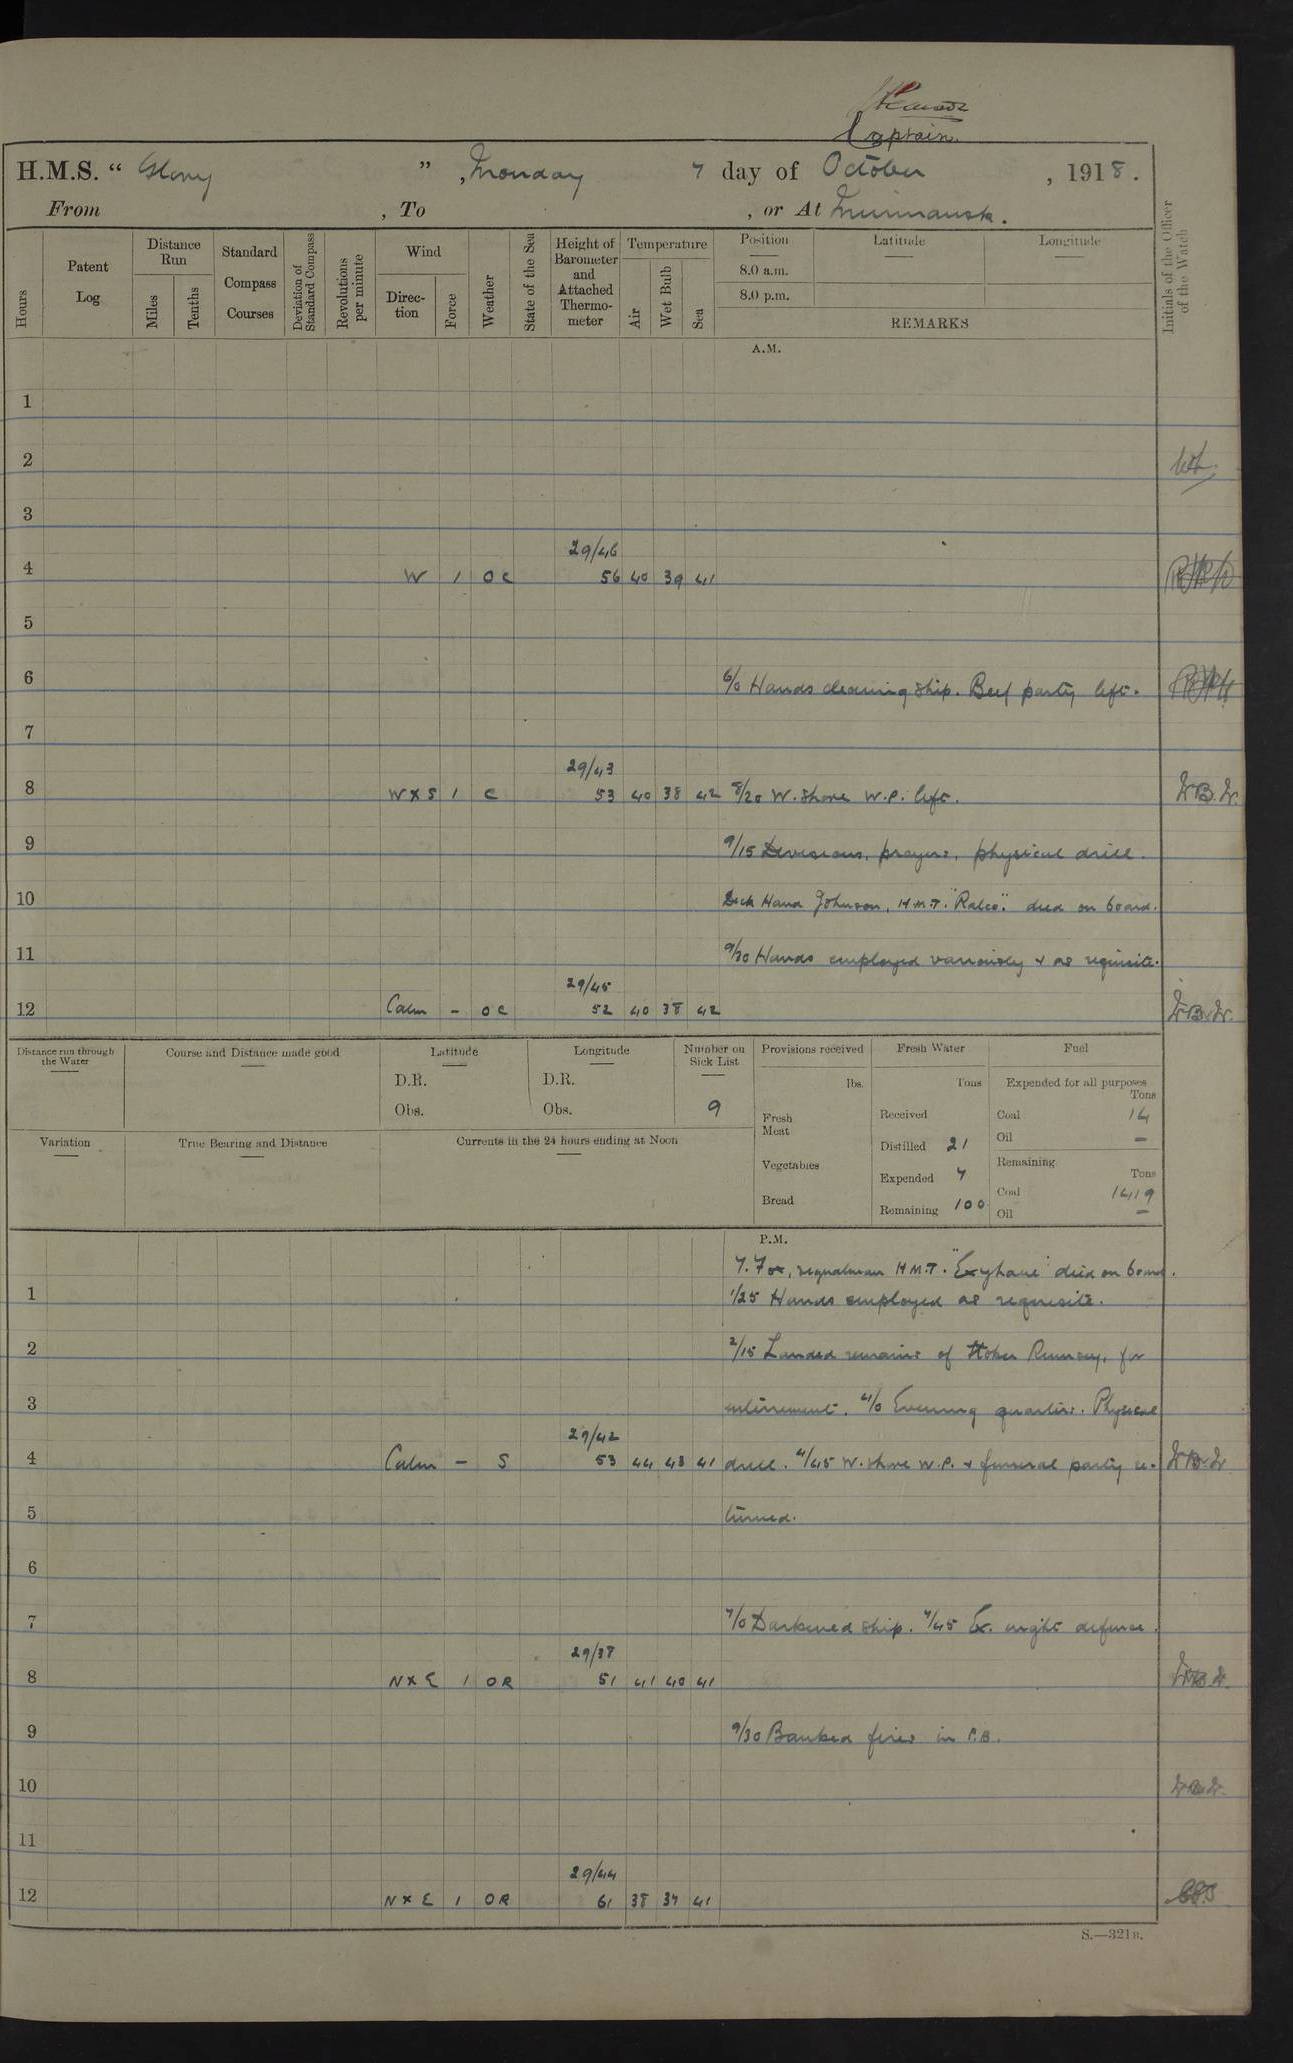 Captain.
H.M.S. “ Glory ” , Monday 7 day of October , 1918.
From , To , or At Murmansk.
Hours
Patent Log
Distance Run
Miles
Tenths
Standard Compass Courses
Deviation of Standard Compass
Revolutions per minute
Wind
Direc- tion
Force
Weather
State of the Sea
Height of Barometer and Attached Thermo- meter
Temperature
Air
Wet Bulb
Sea
Position
8.0 a.m.
8.0 p.m.
Latitude
Longitude
REMARKS
Initials of the Officer of the Watch
A.M.
1
2
3
29/46
4 W 1 OC 56 40 39 41
5
6 6/0 Hands cleaning ship. Beef party left.
7
29/43
8 W X S 1 C 53 40 38 42 8/20 W. shore W.P. left.
9 9/15 Divisions, prayers, physical drill.
10 Deck Hand Johnson, H.M.T. "Ralco" died on board.
11 9/30 Hands employed variously + as requisite.
29/45
12 Calm - OC 52 40 38 42
Distance run through the Water
Course and Distance made good
Latitude
D.R.
Obs.
Longitude
D.R.
Obs.
Number on Sick List
9
Provisions received
lbs.
Fresh Meat
Vegetables
Bread
Fresh Water
Tons
Received
Distilled 21
Expended 7
Remaining 100
Fuel
Expended for all purposes
Tons
Coal 14
Oil -
Remaining
Tons
Coal 1419
Oil -
Variation
True Bearing and Distance
Currents in the 24 hours ending at Noon
P.M.
Fox, signalman H.M.T. died on board.
1 1/25 Hands employed as requisite.
2 2/15 Landed remains of Stoker Rumsey, for
3 interrement. 4/0 Evening quarters. Physical
29/42
4 Calm - S 53 44 43 41 drill. 4/45 W. shore W.P. + funeral party re-
5 turned.
6
7 7/0 Darkened ship. 7/45 Ex. night defence.
29/38
8 N X E 1 OR 51 41 40 41
9 9/30 Banked fires in P.B.
10
11
29/44
12 N X E 1 OR 61 38 37 41
S.—321B.